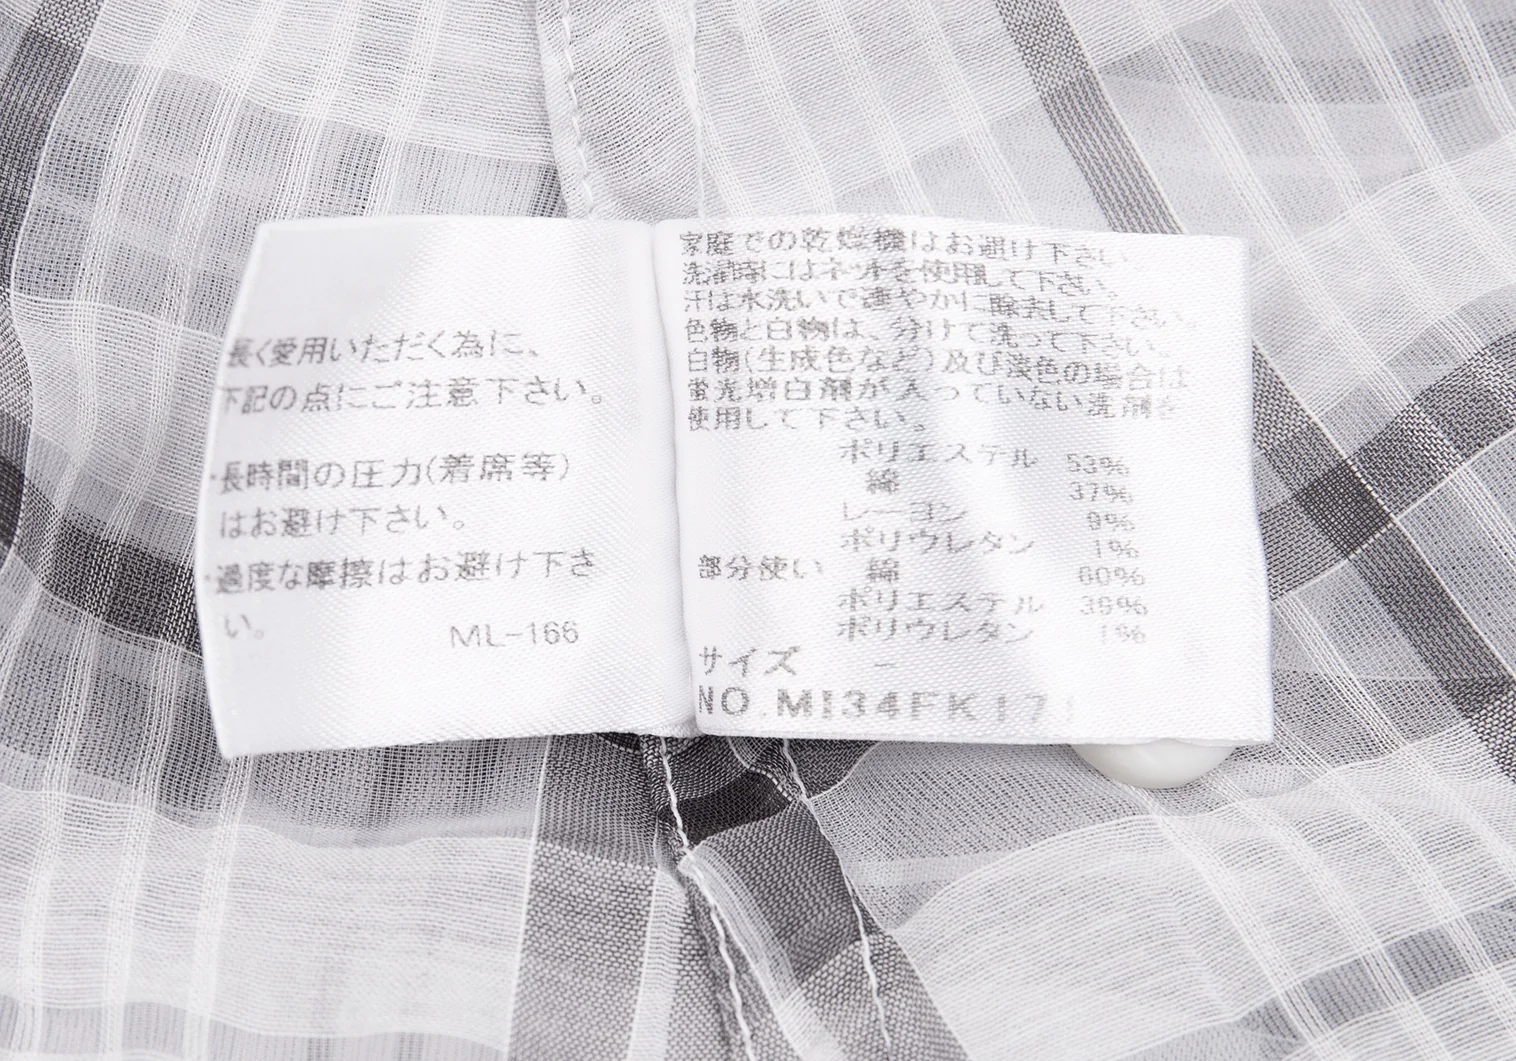 長く愛用いただく為に、
下記の点にご注意下さい。
・長時間の圧力(着席等)
はお避け下さい。
・過度な摩擦はお避け下さ
い。
ML-166
家庭での乾燥機はお避け下さい。
洗濯時にはネットを使用して下さい。
汗は水洗いで速やかに除去して下さい。
色物と白物は、分けて洗って下さい。
白物(生成色など)及び淡色の場合は
蛍光増白剤が入っていない洗剤を
使用して下さい。
ポリエステル 53%
綿 37%
レーヨン 9%
ポリウレタン 1%
部分使い 綿 60%
ポリエステル 39%
ポリウレタン 1%
サイズ -
NO.MI34FK171